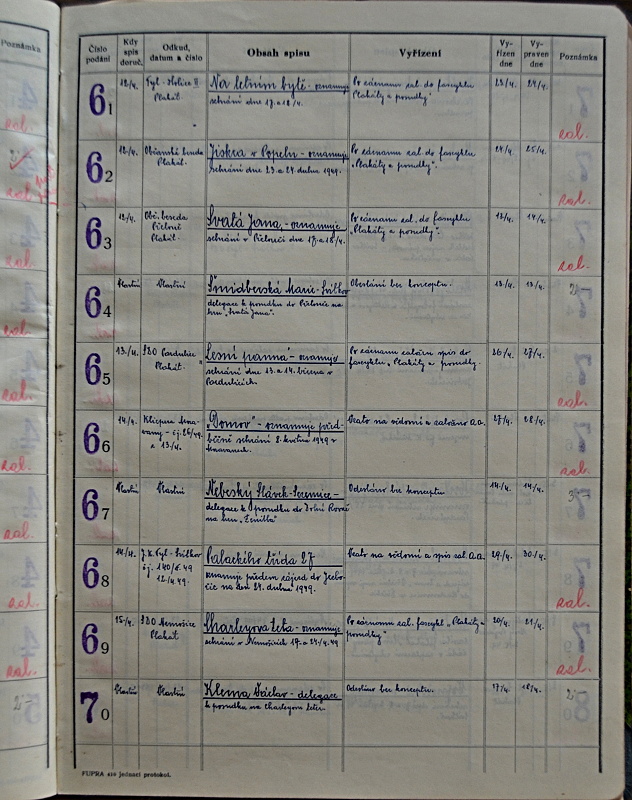 Poznámka
Číslo podání
Kdy spis doruč.
Odkud, datum a číslo
Obsah spisu
Vyřízení
Vyřízen dne
Vypraven dne
Poznámka
61
12/4.
Tyl - Holice II
Plakát.
Na letním bytě - oznamuje
sehrání dne 17. a 18/4.
Po záznamu zal. do fasciklu
„Plakáty a posudky"
23/4.
24/4.
zal.
62
12/4.
Občanská beseda
Plakát.
Jiskra v Popelu - oznamuje
sehrání dne 23. a 24. dubna 1949.
Po záznamu zal. do fasciklu
„Plakáty a posudky".
24/4.
25/4.
zal.
63
12/4.
Obč. beseda
Plakát.
Svatá Jana, - oznamuje
sehrání v dne 17. a 18/4.
Po záznamu zal. do fasciklu
„Plakáty a posudky".
13/4.
14/4.
zal.
64
Vlastní
Vlastní
Šmidberská Marie -
delegace k posudku do na
hru „Svatá Jana".
Odeslání bez konceptu.
13/4.
13/4.
65
13./4.
SDO Pardubice
Plakát.
Lesní panna - oznamuje
sehrání dne 13. a 14. března v
Pardubicích.
Po záznamu založen spis do
fasciklu „Plakáty a posudky.
26/4.
27/4.
zal.
66
14/4.
Klicpera
čj. 26/49
z 13/4.
„Domov" - oznamuje před-
běžně sehrání 8. května 1949 v
Vzato na vědomí a založeno a.a.
27/4.
28/4.
zal.
67
Vlastní
Vlastní
Nebeský Slávek - Sezemice -
delegace k posudku do Dolní Rovně
na hru
Odesláno bez konceptu
14./4.
14/4.
68
14./4.
J. K. Tyl -
čj. 140/6. 49
12/4 49
Palackého třída 27
oznamuje předem zájezd do
na den 24. dubna 1949.
Vzato na vědomí a spis zal. a.a.
29/4.
30/4.
zal.
69
15/4.
SDO Nemošice
Plakát.
Charleyova teta - oznamuje
sehrání v Nemošicích 17. a 24/4. 49
Po záznamu zal. fascikl „Plakáty a
posudky"
20/4.
21/4.
zal.
70
Vlastní
Vlastní
Klema Václav - delegace
k posudku na Charleyovu tetu.
Odesláno bez konceptu.
17/4.
18/4.
FUPRA 410 jednací protokol.